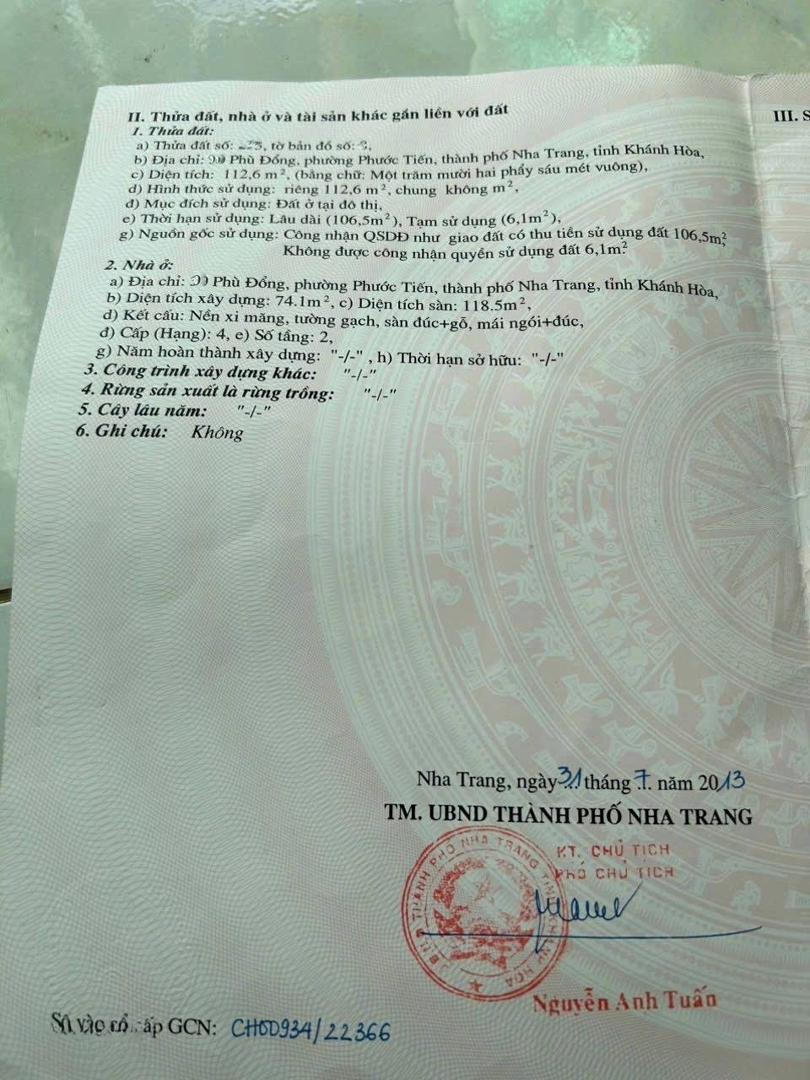 II. Thửa đất, nhà ở và tài sản khác gắn liền với đất
III. S
1. Thửa đất:
a) Thửa đất số: tờ bản đồ số:
b) Địa chỉ: Phù Đổng, phường Phước Tiến, thành phố Nha Trang, tỉnh Khánh Hòa,
c) Diện tích: 112,6 m², (bằng chữ: Một trăm mười hai phẩy sáu mét vuông),
d) Hình thức sử dụng: riêng 112,6 m², chung không m²,
đ) Mục đích sử dụng: Đất ở tại đô thị,
e) Thời hạn sử dụng: Lâu dài (106,5m²), Tạm sử dụng (6,1m²),
g) Nguồn gốc sử dụng: Công nhận QSDĐ như giao đất có thu tiền sử dụng đất 106,5m²,
Không được công nhận quyền sử dụng đất 6,1m².
2. Nhà ở:
a) Địa chỉ: Phù Đổng, phường Phước Tiến, thành phố Nha Trang, tỉnh Khánh Hòa,
b) Diện tích xây dựng: 74.1m², c) Diện tích sàn: 118.5m²,
d) Kết cấu: Nền xi măng, tường gạch, sàn đúc+gỗ, mái ngói+đúc,
đ) Cấp (Hạng): 4, e) Số tầng: 2,
g) Năm hoàn thành xây dựng: "-/-" , h) Thời hạn sở hữu: "-/-"
3. Công trình xây dựng khác: "-/-"
4. Rừng sản xuất là rừng trồng: "-/-"
5. Cây lâu năm: "-/-"
6. Ghi chú: Không
Nha Trang, ngày 31 tháng 7 năm 2013
TM. UBND THÀNH PHỐ NHA TRANG
KT. CHỦ TỊCH
PHÓ CHỦ TỊCH
U.B.N.D THÀNH PHỐ NHA TRANG TỈNH KHÁNH HÒA
Nguyễn Anh Tuấn
Số vào sổ cấp GCN: CH00934/22366